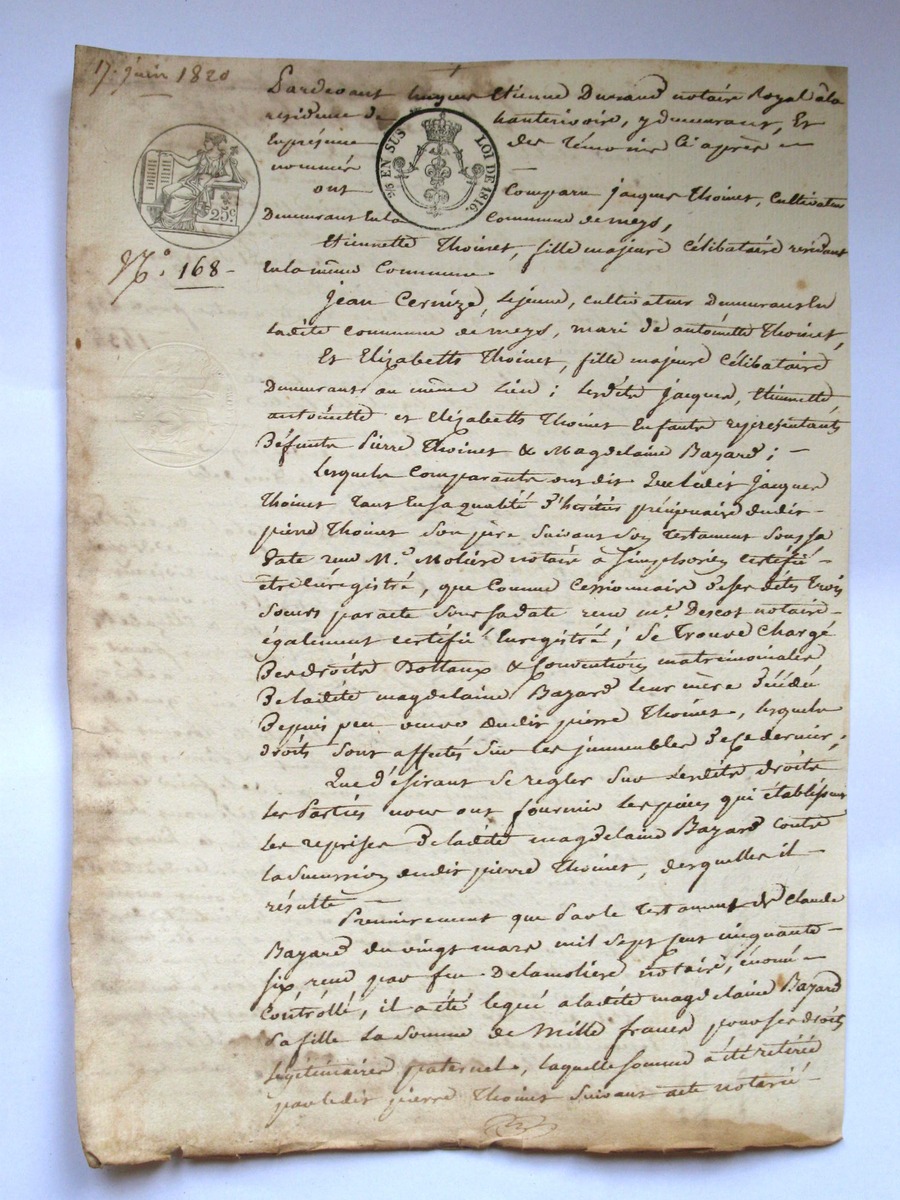 17. juin 1820
Pardevant hugues Etienne Durand notaire Royal à la
residence de hauterivoire, y demeurant, Et
En présence des témoins Ci après
nommés
ont Comparu jacques Thoinet, Cultivateur
Demeurant En la Commune de meys,
25 EN SUS
LOI DE 1816.
25c
N.° 168 -
Etiennette Thoinet, fille majeure Célibataire residant
En la même Commune
Jean Cernize, Lejeune, cultivateur Demeurant En
Ladite Commune de meys, mari de antoinette Thoinet,
Et Elizabeth Thoinet, fille majeure Célibataire
Demeurant au même Lieu; Lesdits Jacques, Etiennette
antoinette et Elizabeth Thoinet Enfants representants
Défunts Pierre Thoinet & Magdelaine Bazard; -
Lesquels Comparants ont dit que Ledit Jacques
Thoinet tant En sa qualité d'heritier dudit
pierre Thoinet son père suivant son Testament sous sa
Date reçu M.e Moliere notaire à certifié -
être Enregistré, que Comme Cessionnaire de ses dites trois
soeurs par acte sous sa date reçu m.e Descot notaire -
également certifié Enregistré; se trouve Chargé
Des droits Dottaux & Conventions matrimoniales
De ladite magdelaine Bazard leur mère Décédée
Depuis peu veuve dudit pierre Thoinet, lesquels
droits sont affectés sur les immeubles de ce dernier;
Que désirant se regler sur Lesdits droits
Les Parties nous ont fournir Les pièces qui établissent
Les reprises De ladite magdelaine Bazard contre
la succession dudit pierre Thoinet, desquelles il -
résulte -
Premierement que Par le Testament de Claude
Bazard du vingt mars mil sept cent cinquante -
six reçu par feu Delamoliere notaire,
Contrôllé, il a été legué a ladite magdelaine Bazard
Sa fille La Somme de Mille francs pour ses droits
Legitimaires paternel, laquelle somme a été retirée
par ledit pierre Thoinet suivant acte notarié -